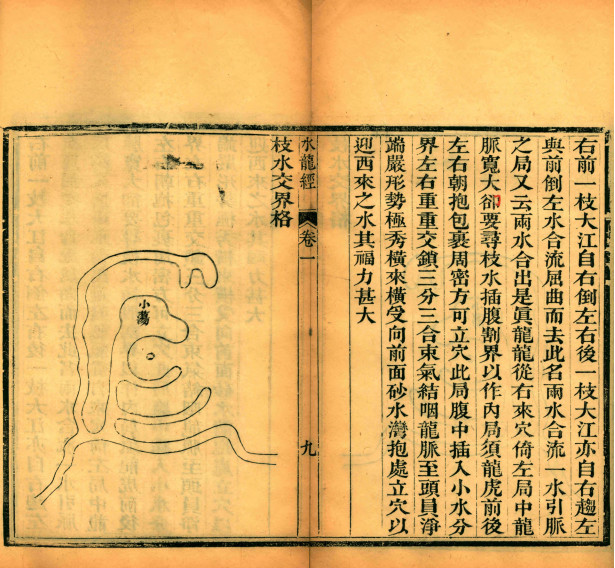 右前一枝大江自右倒左右後一枝大江亦自右趨左
與前倒左水合流屈曲而去此名兩水合流一水引脈
之局又云兩水合出是眞龍龍從右來穴倚左局中龍
脈寬大卻要尋枝水插腹割界以作內局須龍虎前後
左右朝抱包裹周密方可立穴此局腹中插入小水分
界左右重重交鎖三分三合束氣結咽龍脈至頭員淨
端嚴形勢極秀橫來橫受向前面砂水灣抱處立穴以
迎西來之水其福力甚大
水龍經
卷一
九
枝水交界格
小蕩